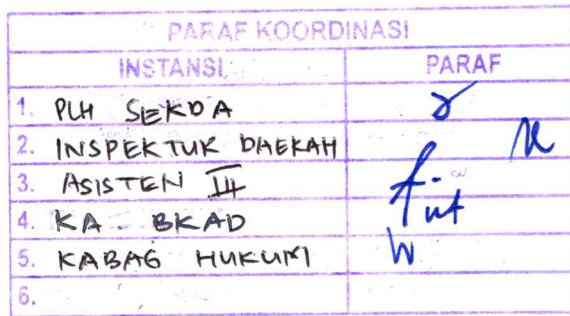 PARAF KOORDINASI
INSTANSI PARAF
1. PLH SEKDA
2. INSPEKTUR DAERAH
3. ASISTEN III
4. KA. BKAD
5. KABAG HUKUM
6.